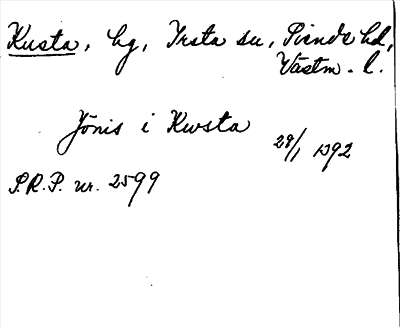 Kusta, hg, Irsta sn, Siende hd,
Västm. l.
Jönis i Kwsta
28/1 1392
S.R.P. nr. 2599